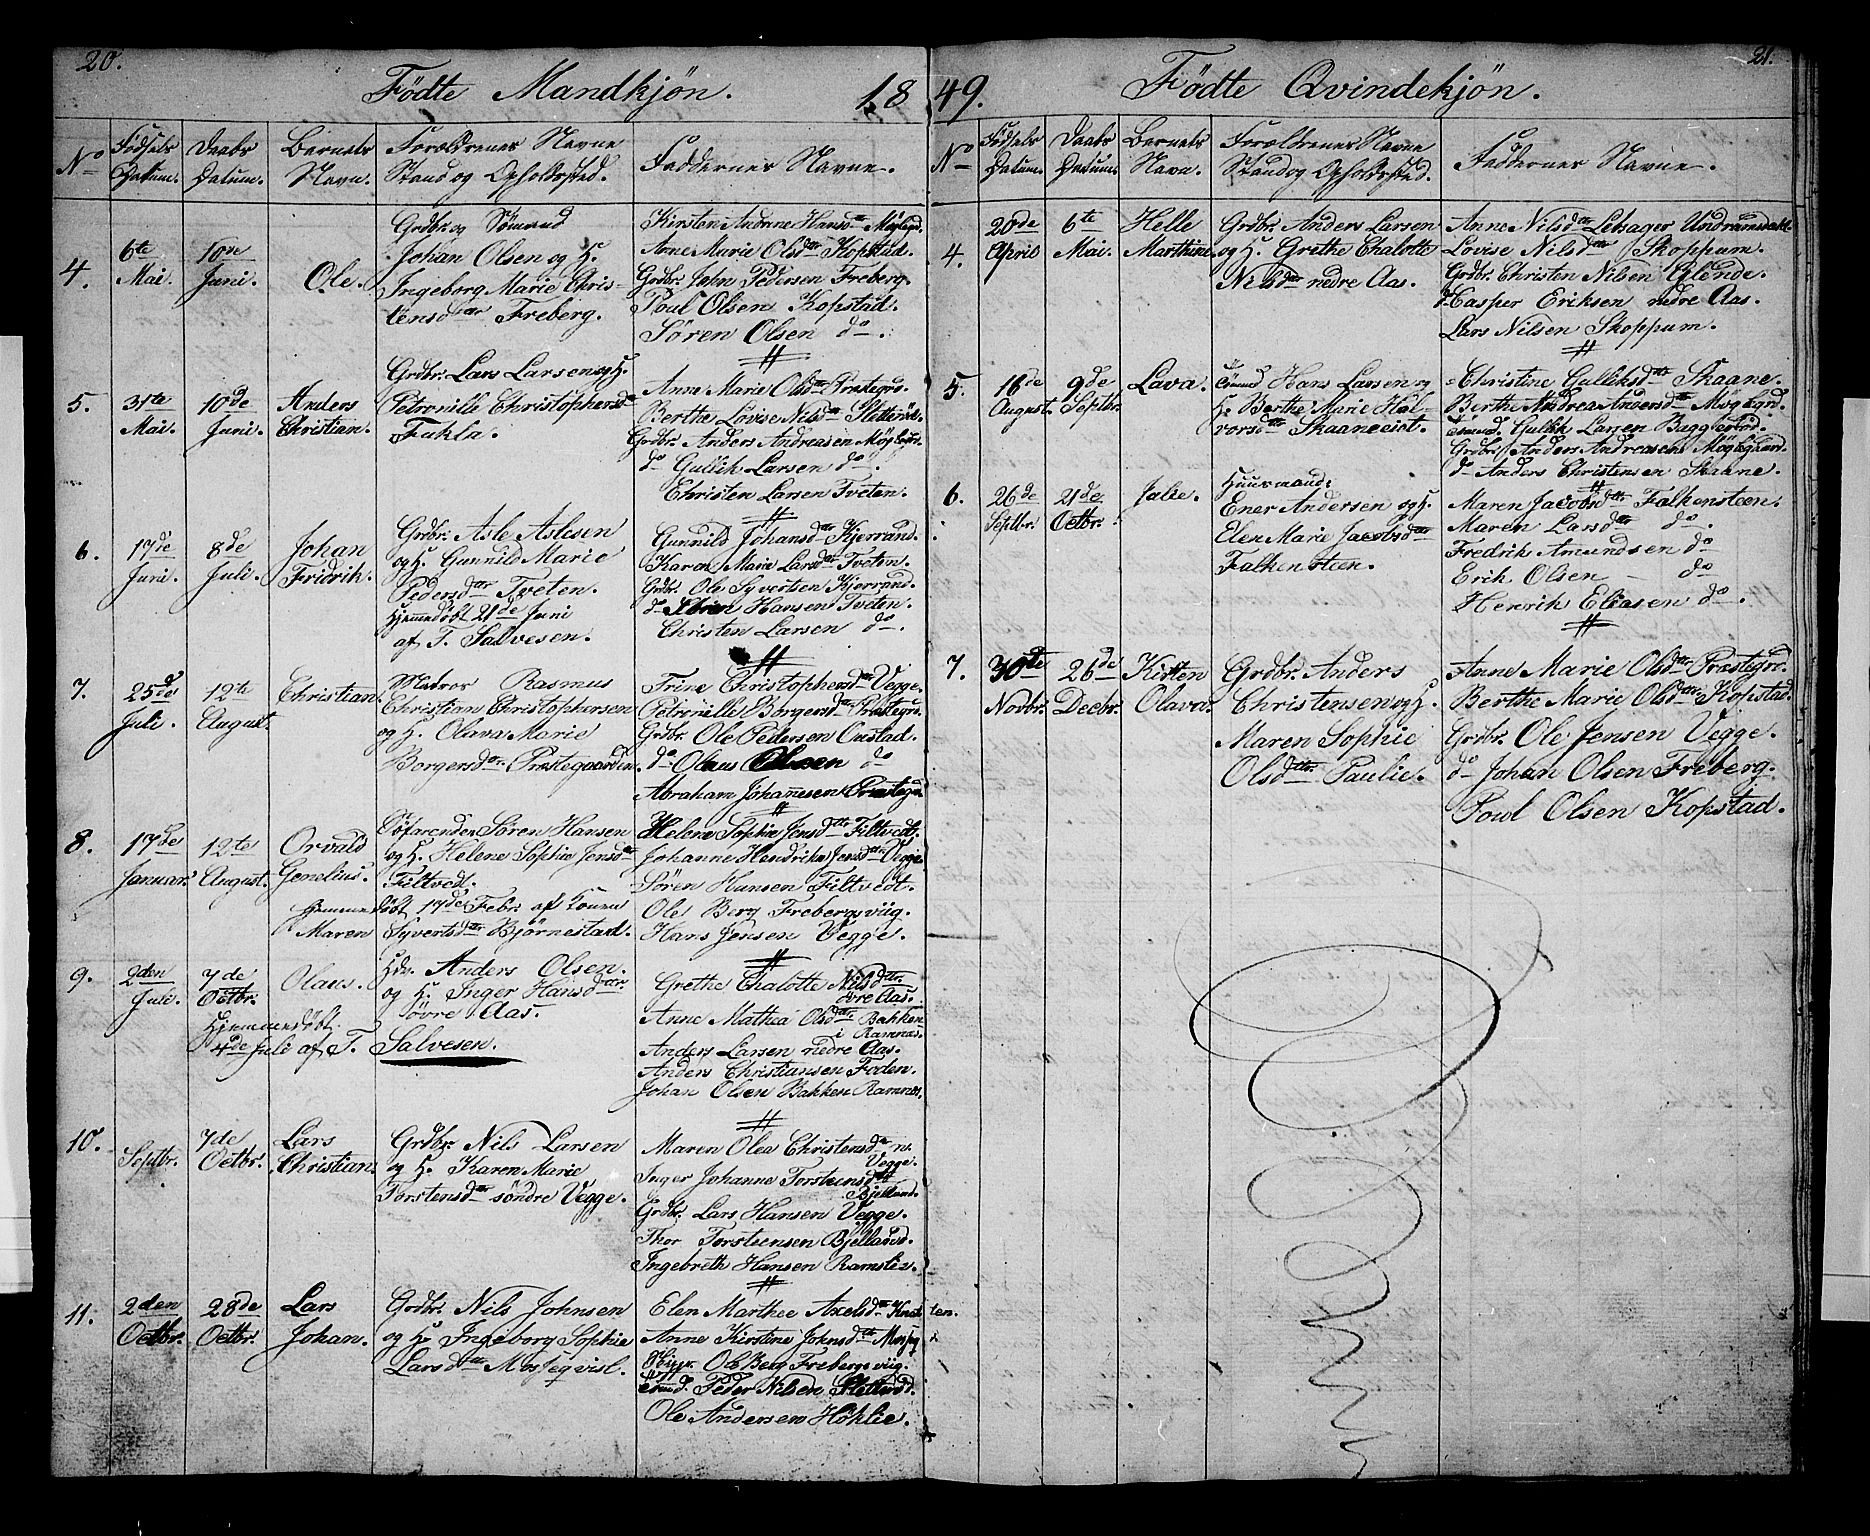 20.
Födte Mandkjön. 18
No
Födsels Datum.
Daabs Datum.
Barnets Navn.
Forældrenes Navne Stand og Opholdssted.
Faddernes Navne.
4.
6te Mai.
10de Juni.
Ole.
Grdbr. og Sömand
Johan Olsen og H.
Ingeborg Marie Chris-
tensdttr Freberg.
Kirsten Andrine Hansdttr Möglegd.
Anne Marie Olsdttr Kopstad.
Grdbr. John Pedersen Freberg.
Poul Olsen Kopstad.
Sören Olsen do.
5.
31te Mai.
10de Juni.
Anders Christian.
Grdbr. Lars Larsen og H.
Petronille Christophersdr
Fuhla.
Anne Marie Olsdttr Præstegrd.
Berthe Lovise Nilsdr
Grdbr. Anders Andreasen Möglegrd.
do Gullik Larsen do.
Christen Larsen Tveten.
6.
17de Juni.
8de Juli.
Johan Fridrik.
Grdbr. Asle Aslesen
og H. Gunnild Marie
Pedersdttr Tveten.
Hjemmedöbt 21de Juni
af T. Salvesen.
Gunnild Johansdttr Kjerrand.
Karen Marie Larsdttr Tveten.
Grdbr. Ole Syvertsen Kjerrand.
do Sören Hansen Tveten.
Christen Larsen do.
7.
25de Juli.
12te August.
Christian.
Matros Rasmus
Christian Christophersen
og H. Olava Marie
Borgersdttr Præstegaarden.
Trine Christophersdttr Vegge.
Petronille Borgersdr Præstegrd.
Grdbr. Ole Pedersen
do Olaus Olsen do
Abraham Johannesen Præstegrd.
8.
17de Januar.
12te August.
Orvald Cornelius.
Söfarende Sören Hansen
og H. Helene Sophie Jensdttr
Filtvedt.
Hjemmedöbt 17de Febr. af Konen
Maren Syvertsdttr Björnestad.
Helene Sophie Jensdttr Filtvedt.
Johanne Hendrikke Jensdttr Vegge
Sören Hansen Filtvedt.
Ole Berg Frebergsviig.
Hans Jensen Vegge.
9.
2den Juli.
7de Octbr.
Olaus.
Anders Olsen.
og H. Inger Hansdttr.
övre Aas.
Hjemmedöbt
4de Juli af T. Salvesen.
Grethe Chalotte Nilsdttr
övre Aas.
Anne Mathea Olsdttr Bakken
i Ramnæs
Anders Larsen nedre Aas.
Anders Christiansen Foden.
Johan Olsen Bakken Ramnæs.
10.
Septbr.
7de Octbr.
Lars Christian.
Grdbr. Nils Larsen
og H. Karen Marie
Torstensdttr söndre Vegge.
Maren Olea Christensdr n.
Vegge.
Inger Johanne Torsteensdttr
Bjelland.
Grdbr. Lars Hansen Vegge.
Thor Torsteensen Bjelland.
Ingebreth Hansen Ramslie.
11.
2den Octbr.
28de Octbr.
Lars Johan.
Grdbr. Nils Johnsen
og H. Ingeborg Sophie
Larsdttr Mosseqvisl.
Elen Marthee Axelsdttr Knatten.
Anne Kirstine Johnsdttr
Skippr. Ole Berg Frebergsviig.
Peder Nilsen
Ole Andersen Höklie.
49. Födte Qvindekjön.
21.
No
Födsels Datum.
Daabs Datum.
Barnets Navn.
Forældrenes Navne Stand og Opholdssted.
Faddernes Navne.
4.
20de April
6te Mai.
Helle Marthine
Grdbr. Anders Larsen
og H. Grethe Chalotte
Nilsdttr nedre Aas.
Anne Nilsdttr Letsager Undrumsdahl
Lovise Nilsdttr Skoppum.
Grdbr. Christen Nilsen Glende.
do Casper Eriksen nedre Aas.
Lars Nilsen Skoppum.
5.
18de August.
9de Septbr.
Lava.
Hans Larsen og
H. Berthe Marie Hal-
vorsdttr Skaaneeiet.
Christine Gulliksdttr Skaane.
Berthe Andrea Andersdttr Möglegrd.
Gullik Larsen Baggeröd.
Grdbr. Anders Andreasen Möglegaard.
do Anders Christensen Skaane.
6.
26de Septbr.
21de Octbr.
Julie.
Huusmand
Ener Andersen og H.
Elen Marie Jacobsdttr
Falkensteen.
Maren Jacobsdttr Falkensteen.
Maren Larsdttr do.
Fredrik Amundsen do
Erik Olsen - do
Henrik Eliasen do.
7.
30te Novbr.
26de Decbr.
Kirsten Olava.
Grdbr. Anders
Christensen og H.
Maren Sophie
Olsdttr Paulie.
Anne Marie Olsdttr Præstegrd.
Berthe Marie Olsdttr Kopstad.
Grdbr. Ole Jensen Vegge.
do Johan Olsen Freberg.
Poul Olsen Kopstad.